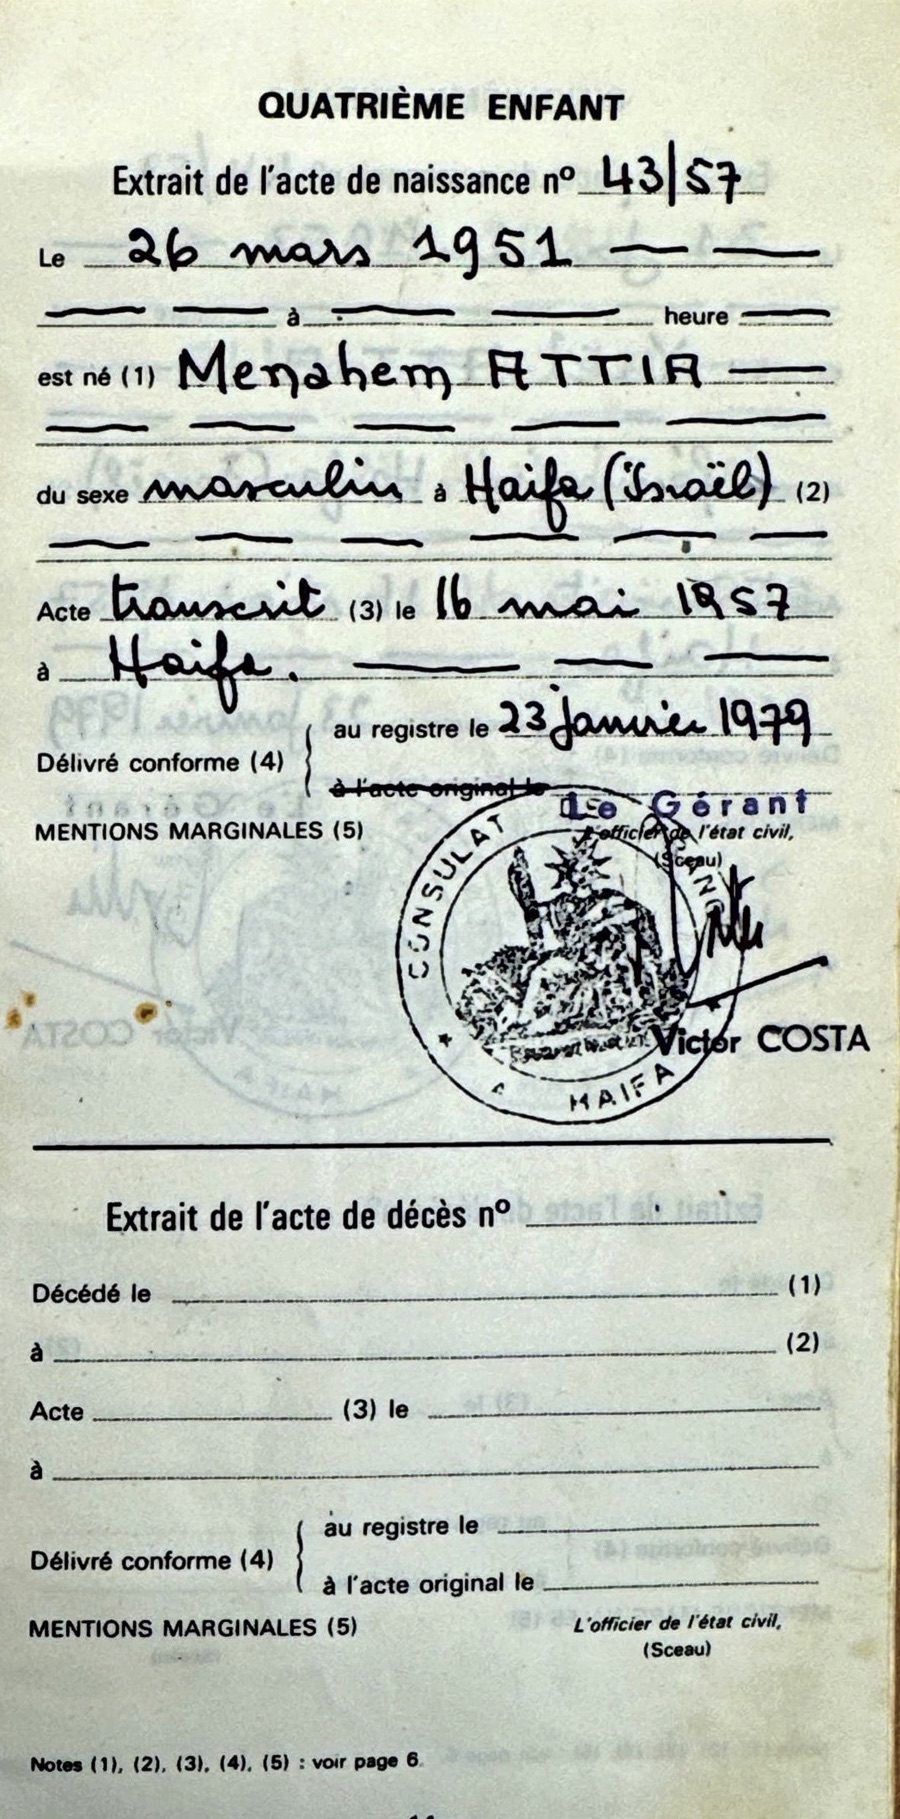 QUATRIÈME ENFANT
Extrait de l'acte de naissance nº 43/57
Le 26 mars 1951
à heure
est né (1) Menahem ATTIA
du sexe masculin à Haifa (Israël) (2)
Acte transcrit (3) le 16 mai 1957
à Haifa.
au registre le 23 janvier 1979
Délivré conforme (4)
à l'acte original le
Le Gérant
MENTIONS MARGINALES (5)
L'officier de l'état civil,
(Sceau)
CONSULAT
A HAIFA
Victor COSTA
Extrait de l'acte de décès nº
Décédé le (1)
à (2)
Acte (3) le
à
au registre le
Délivré conforme (4)
à l'acte original le
MENTIONS MARGINALES (5)
L'officier de l'état civil,
(Sceau)
Notes (1), (2), (3), (4), (5) : voir page 6.